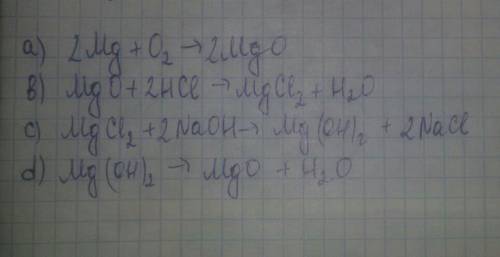 a) 2Mg + O₂ → 2MgO
b) MgO + 2HCl → MgCl₂ + H₂O
c) MgCl₂ + 2NaOH → Mg(OH)₂ + 2NaCl
d) Mg(OH)₂ → MgO + H₂O